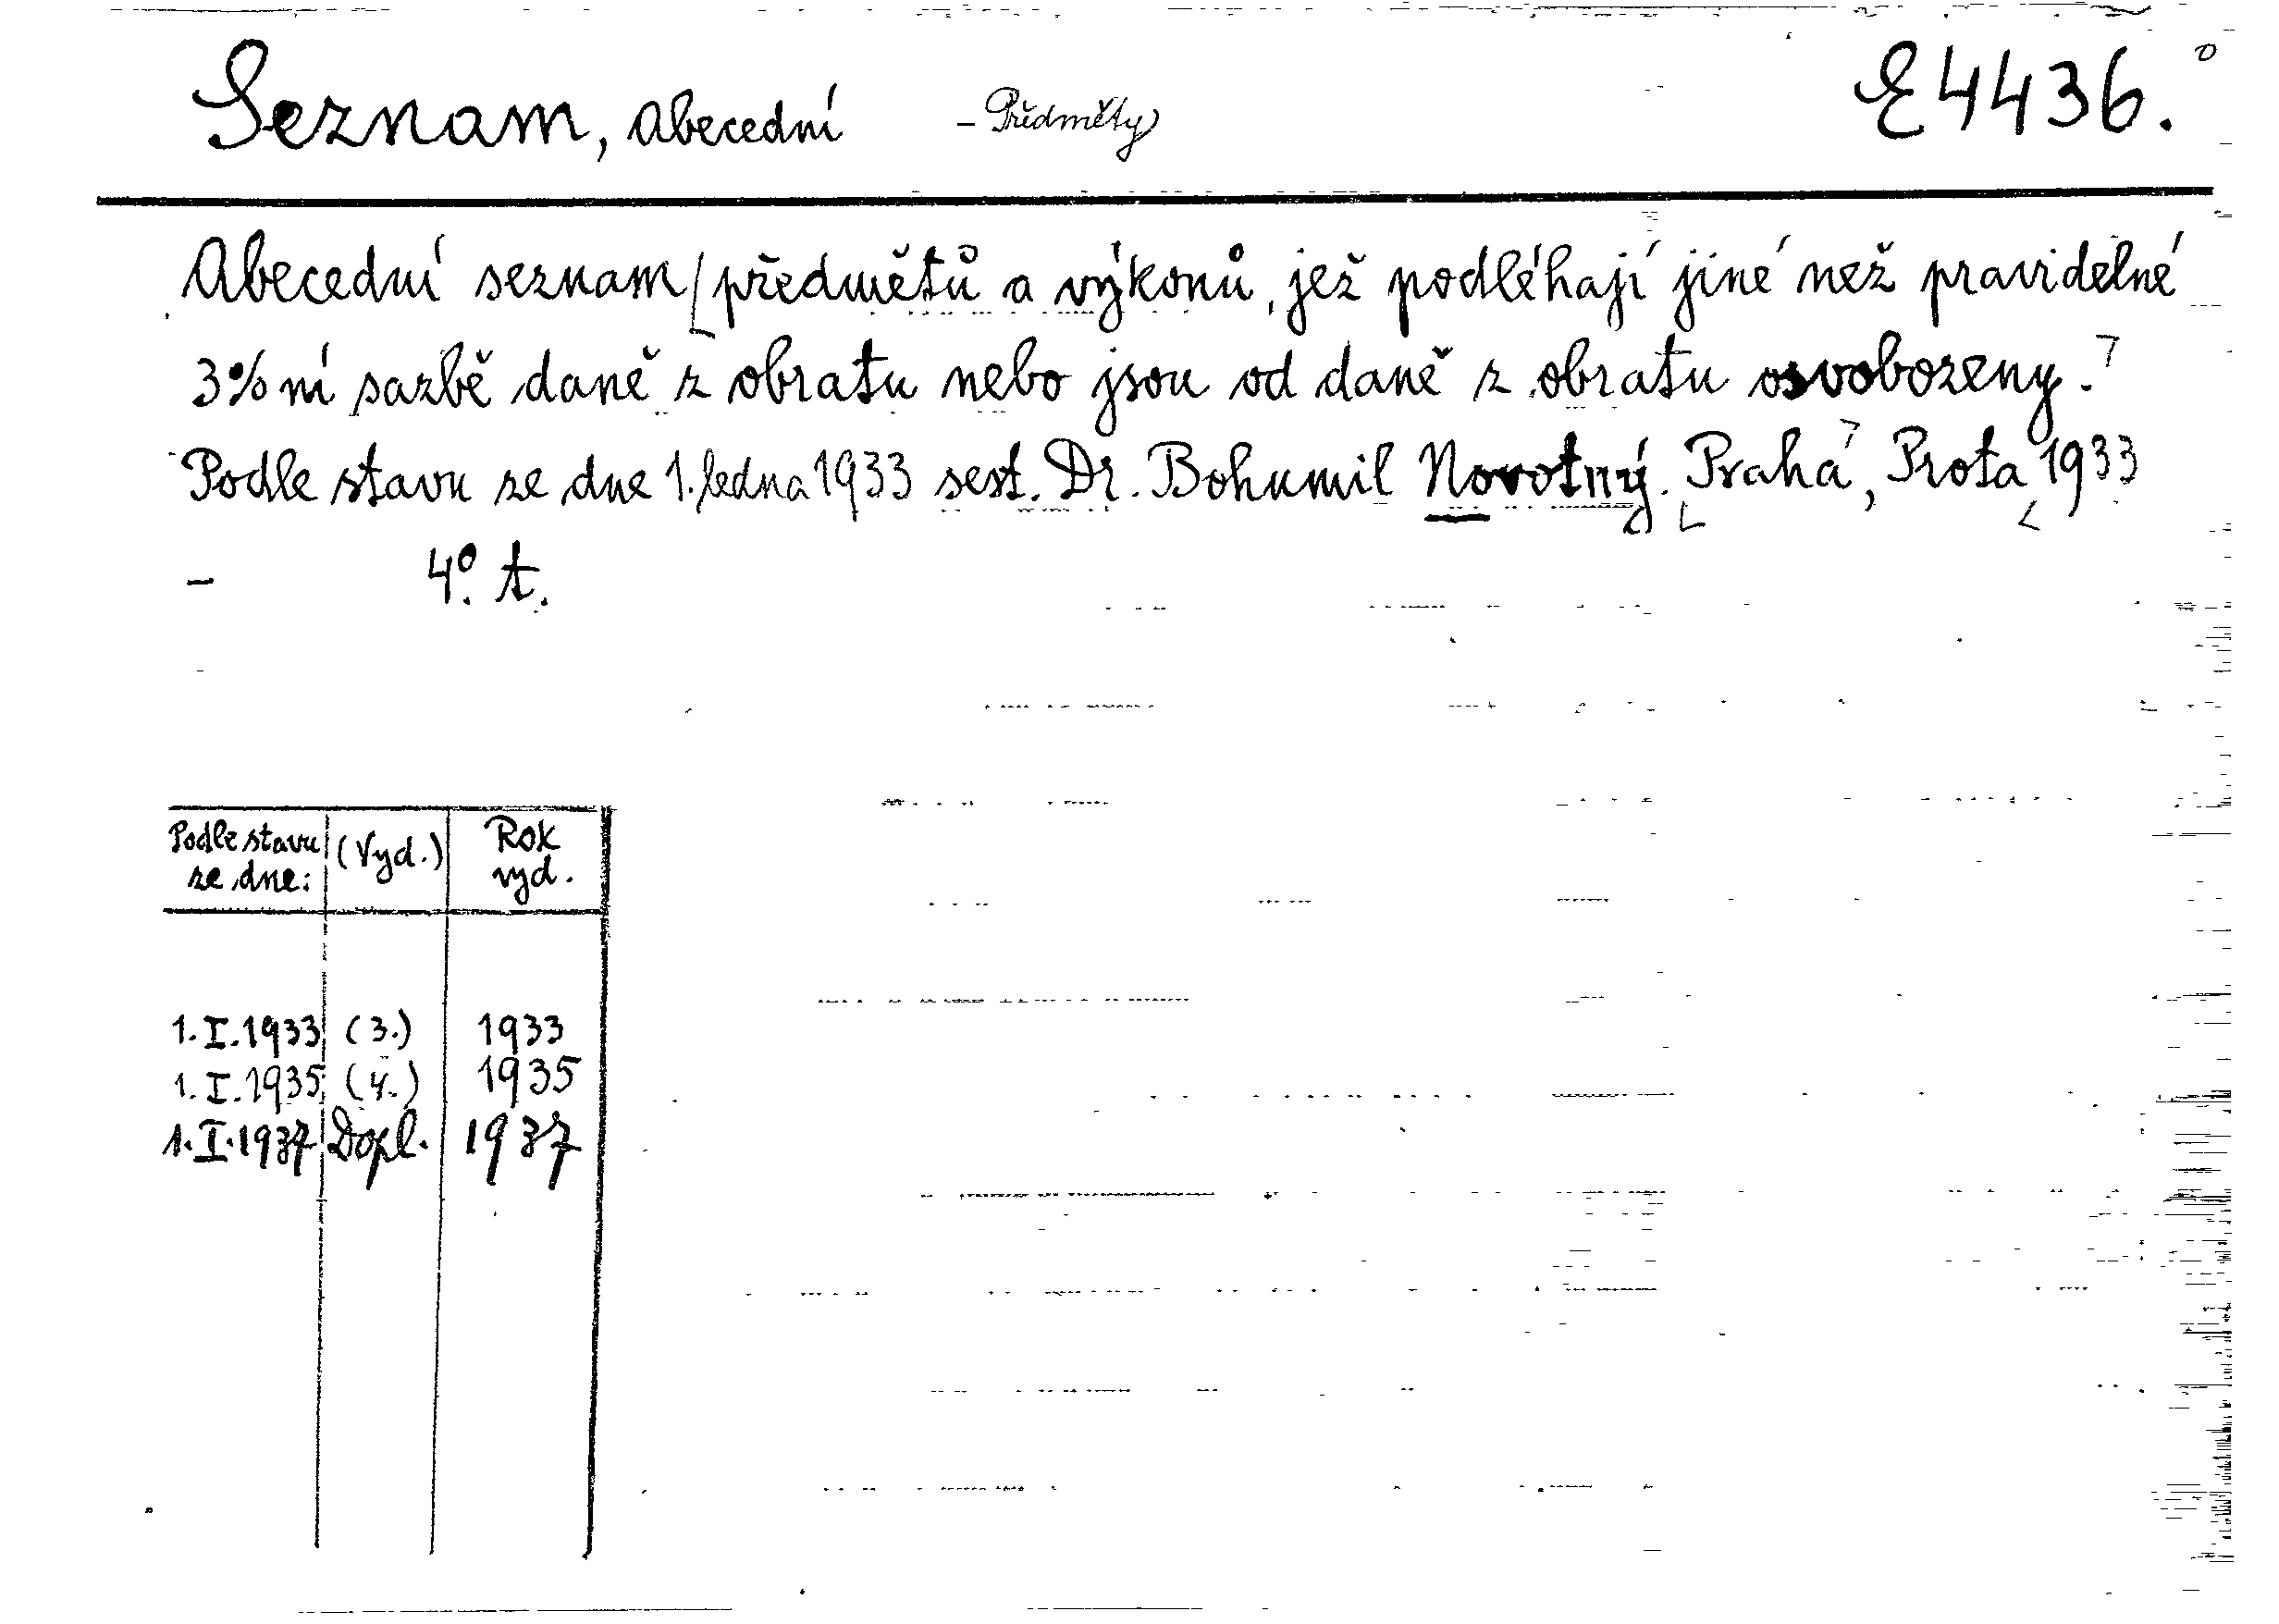 Seznam, abecední – Předměty E 4436.
Abecední seznam předmětů a výkonů, jež podléhají jiné než pravidelné
3%ní sazbě daně z obratu nebo jsou od daně z obratu osvobozeny.
Podle stavu ze dne 1. ledna 1933 sest. Dr. Bohumil Novotný. Praha, Prota 1933
– 4° t.
Podle stavu ze dne: (Vyd.) Rok vyd.
1.I.1933 (3.) 1933
1.I.1935 (4.) 1935
1.I.1937 Dopl. 1937